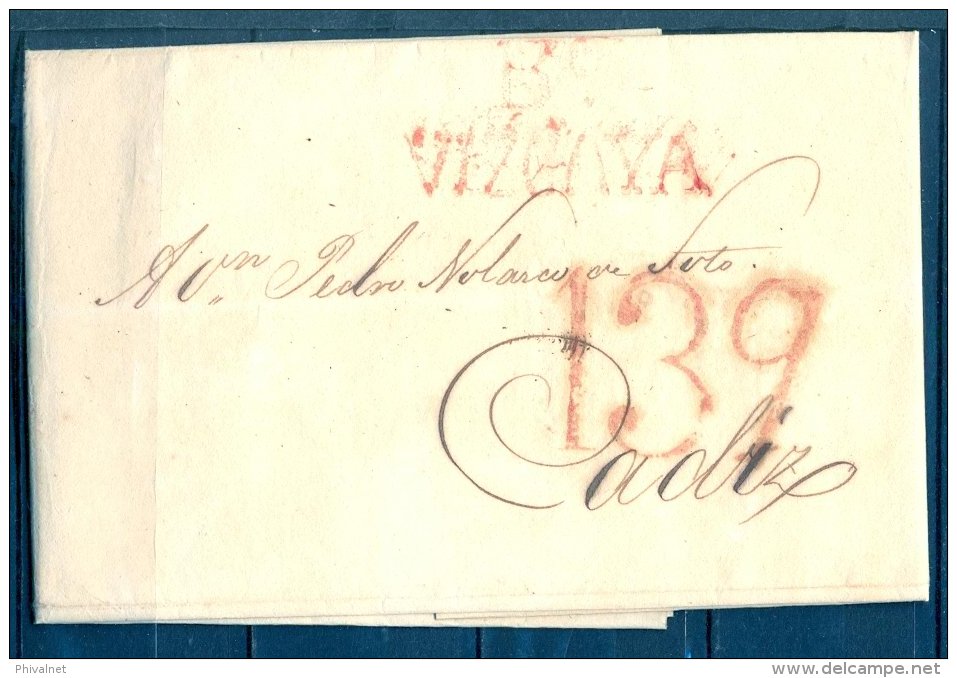 B
A Dn. Pedro Nolasco de Soto.
139
Cadiz
Phivalnet
delcampe.net